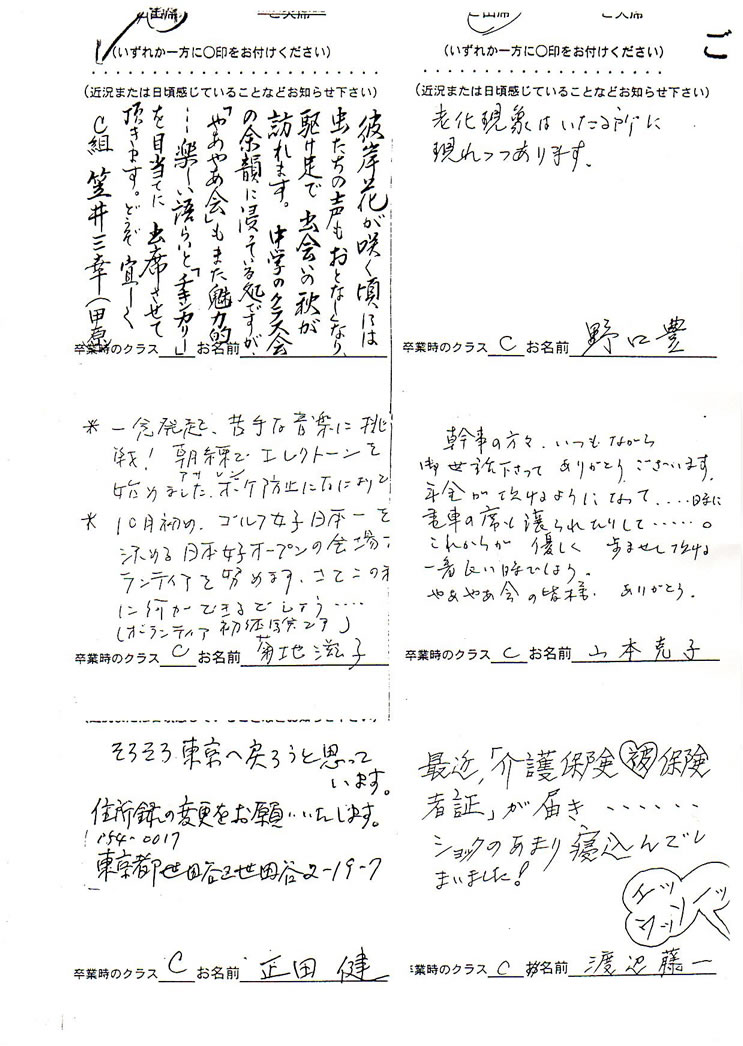 ご出席
ご欠席
(いずれか一方に〇印をお付けください)
(近況または日頃感じていることなどお知らせ下さい)
彼岸花が咲く頃には
虫たちの声もおとなしくなり、
駆け足で出会いの秋が
訪れます。中学のクラス会
の余韻に浸っている処ですが、
「やあやあ会」もまた魅力的
…楽しい語らいと「チキンカリー」
を目当てに出席させて
頂きます。どうぞ宜しく
C組 笠井三幸(甲原
卒業時のクラス お名前
ご出席
ご欠席
(いずれか一方に〇印をお付けください)
ご
(近況または日頃感じていることなどお知らせ下さい)
老化現象はいたる所に
現れつつあります。
卒業時のクラス C お名前 野口豊
* 一念発起、苦手な音楽に挑
戦! 朝練でエレクトーンを
アサレン
始めました。ボケ防止になにより
* 10月初め、ゴルフ女子日本一を
決める日本女子オープンの会場
ランティアを努めます。さてこの
に何ができるでしょう....
(ボランティア初体験です)
卒業時のクラス C お名前 菊地滋子
幹事の方々、いつもながら
御世話下さって ありがとうございます。
年金が頂けるようになって、....時に
電車の席も譲られたりして......。
これからが 優しく 歩ませて頂ける
一番良い時でしょう。
やあやあ会の皆様、ありがとう。
卒業時のクラス C お名前 山本克子
そろそろ東京へ戻ろうと思って
います。
住所録の変更をお願いいたします。
154-0017
東京都世田谷区世田谷2-19-7
卒業時のクラス C お名前 正田 健
最近、「介護保険被保険
者証」が届き......
ショックのあまり寝込んでし
まいました!
卒業時のクラス C お名前 渡辺藤一